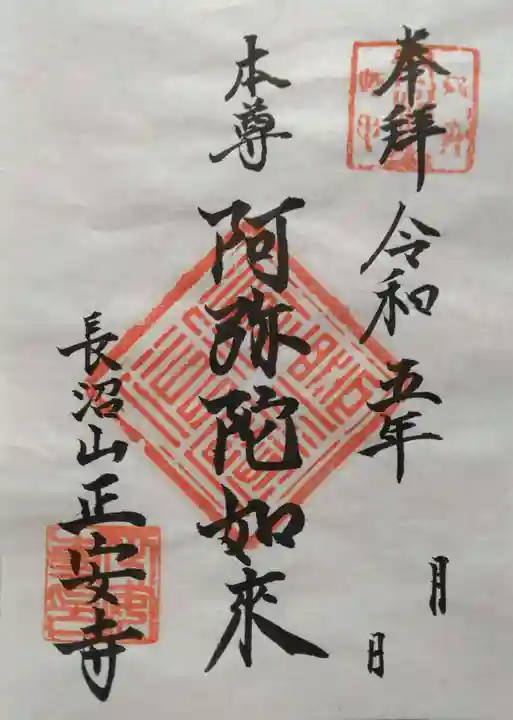 奉拜
令和五年
月
日
本尊
阿弥陀如來
長沼山正安寺